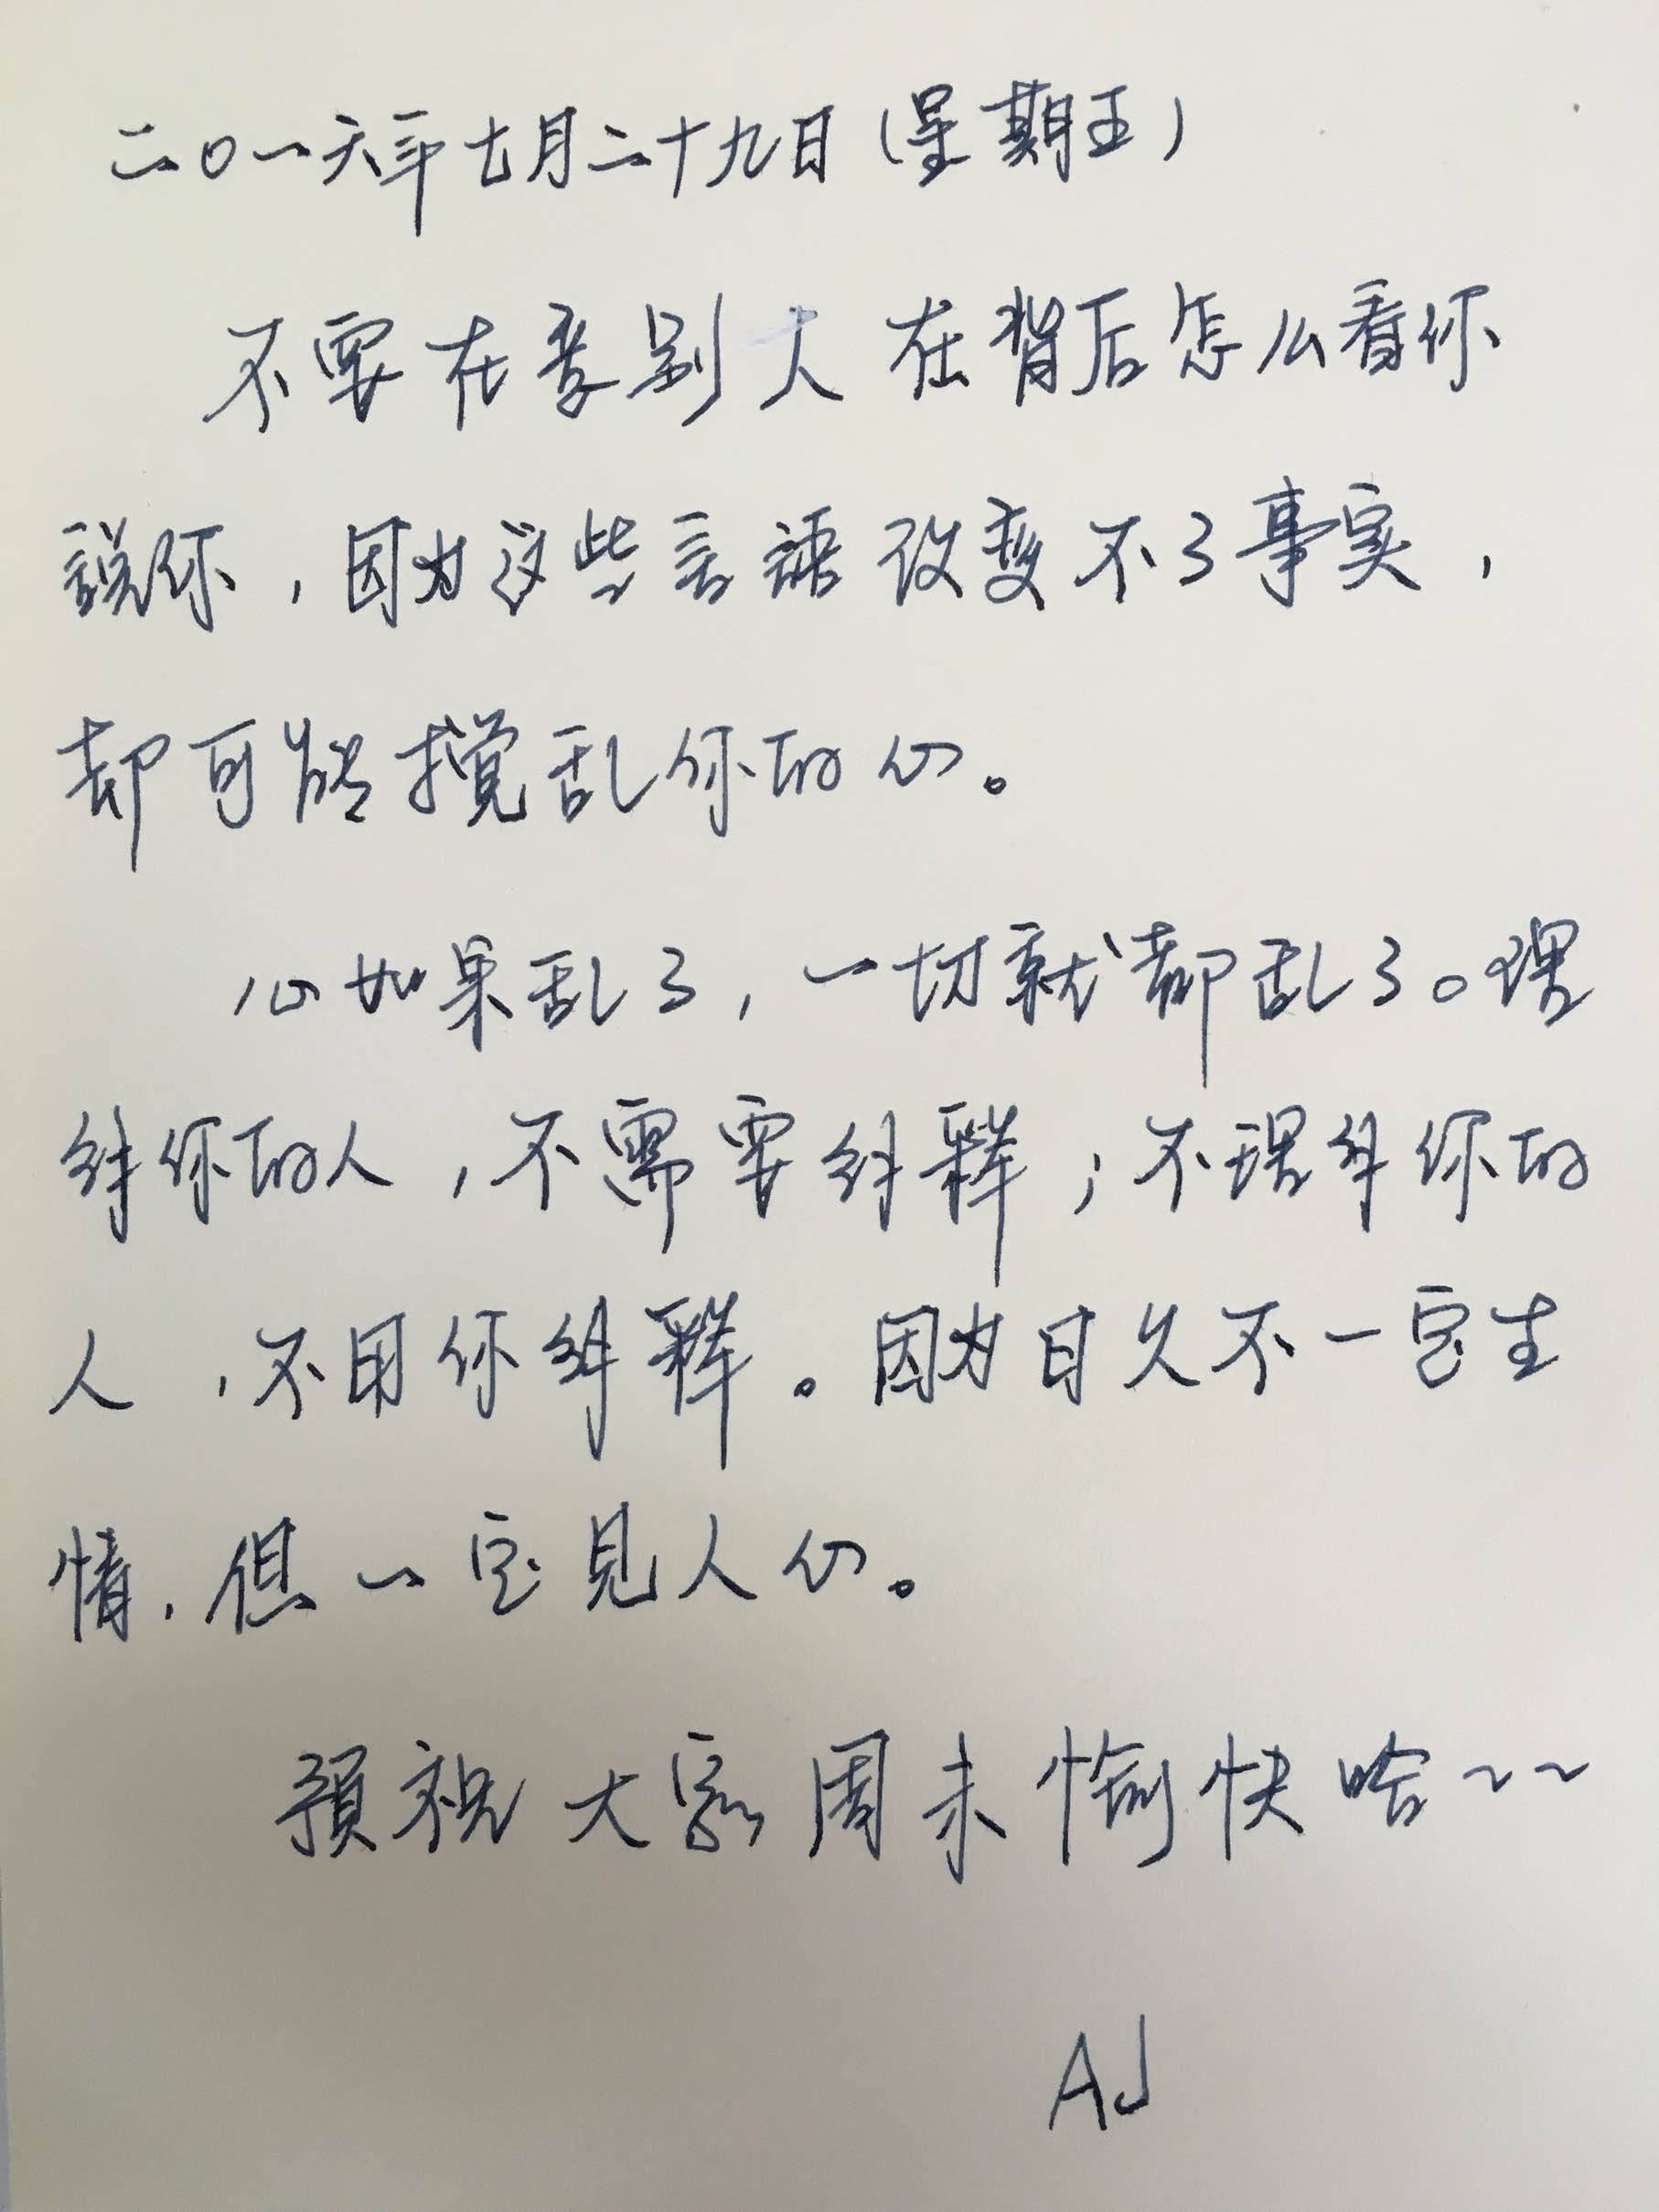 二〇一六年七月二十九日（星期五）
不要在意别人在背后怎么看你
説你，因为这些言語改变不了事实，
却可能搅乱你的心。
心如果乱了，一切就都乱了。理
解你的人，不需要解释；不理解你的
人，不用你解释。因为日久不一定生
情，但一定见人心。
預祝大家周末愉快哈~~
AJ